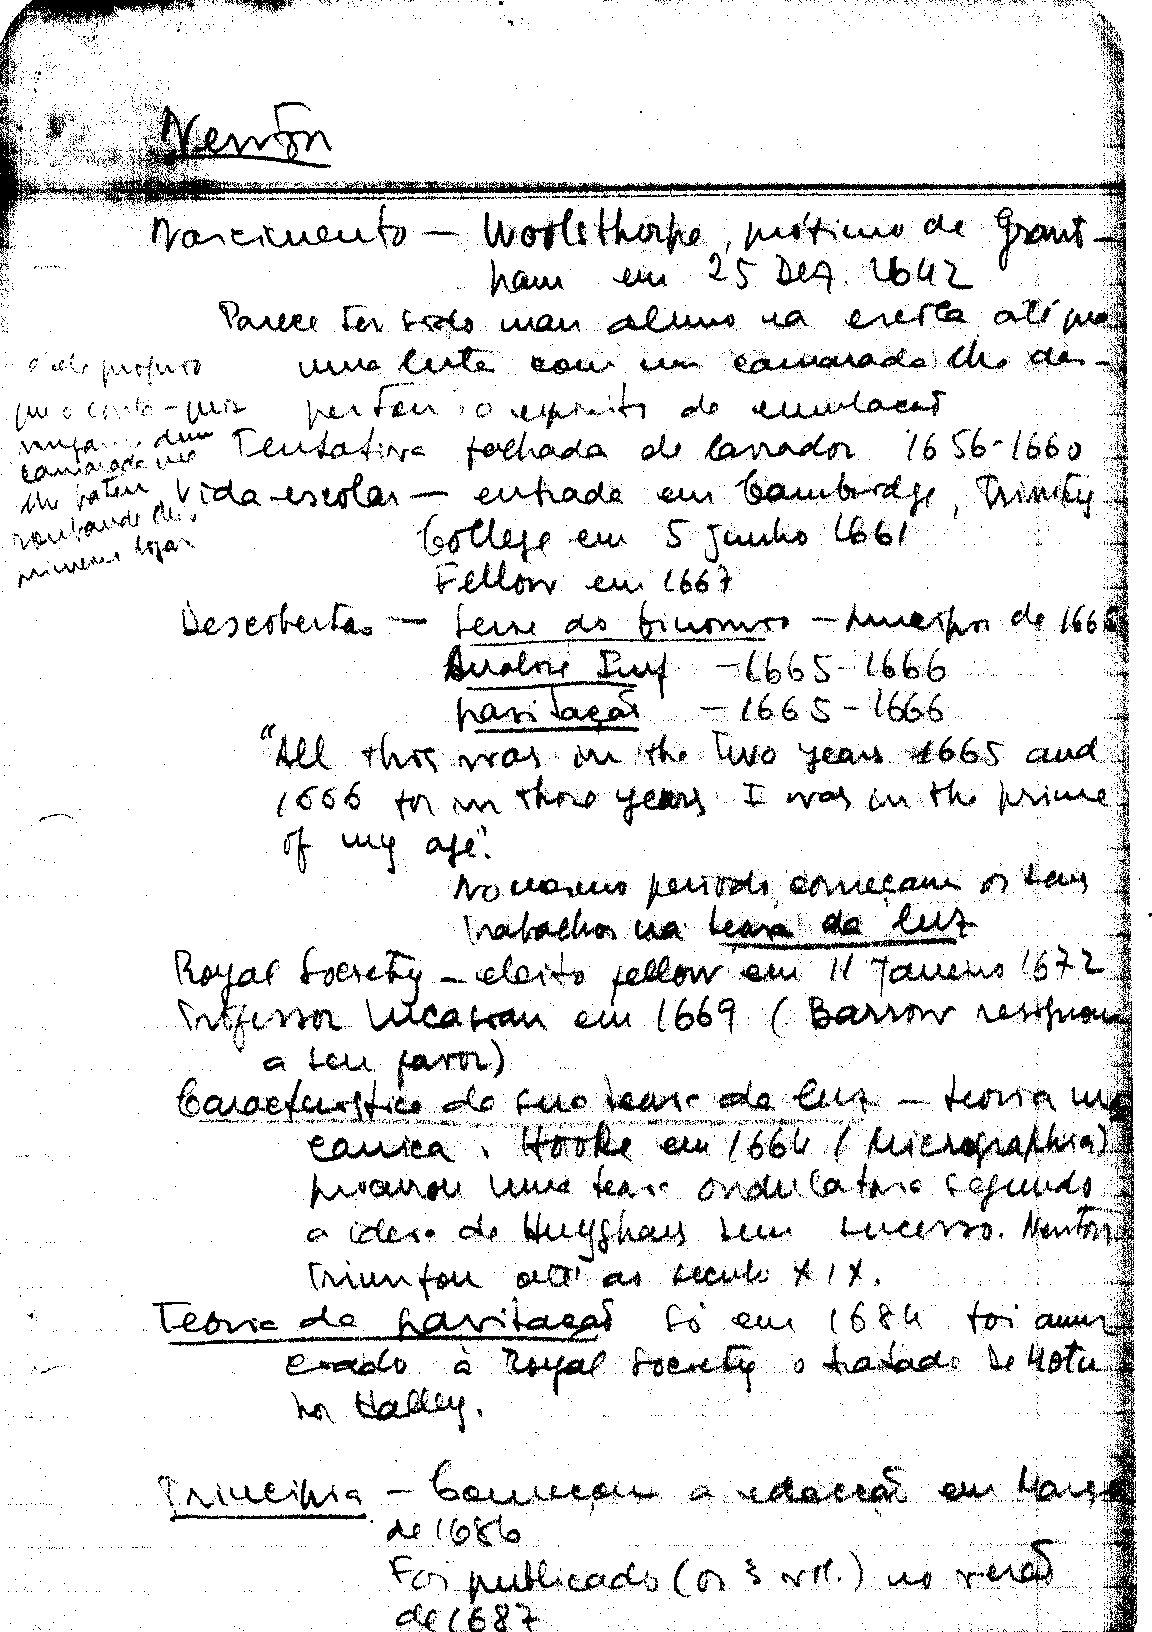 Newton
Nascimento — Woolsthorpe, próximo de Grant-
ham em 25 Dez. 1642
Parece ter sido mau aluno na escola até que
uma luta com um camarada lhe des-
pertou o espírito de emulação
é ele próprio
que o conta - quiz
camarada que
lhe batera
roubando-lhe o
primeiro lugar
Tentativa falhada de lavrador 1656-1660
Vida escolar — entrada em Cambridge, Trinity
College em 5 Junho 1661
Fellow em 1667
Descobertas — Serie do binomio — principios de 1665
Analise Inf — 1665-1666
gravitação — 1665-1666
"All this was in the two years 1665 and
1666 for in those years I was in the prime
of my age".
No mesmo periodo começam os seus
trabalhos na teoria da luz
Royal Society — eleito fellow em 11 Janeiro 1672
Professor Lucasian em 1669 (Barrow resignou
a seu favor)
Caracteristica da sua teoria da luz — teoria me
canica. Hooke em 1664 (Micrographia)
procurou uma teoria ondulatoria segundo
a ideia de Huyghens sem sucesso. Newton
triunfou até ao seculo XIX.
Teoria da gravitação Só em 1684 foi anun
ciado à Royal Society o tratado De Motu
por Halley.
Principia — Começou a redacção em Março
de 1686
Foi publicado (os 3 vol.) no verão
de 1687